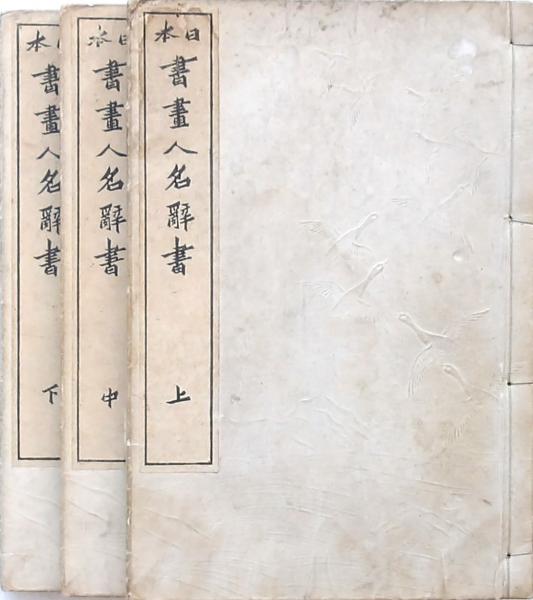 日本
書畫人名辭書
上
日本
書畫人名辭書
中
日本
書畫人名辭書
下